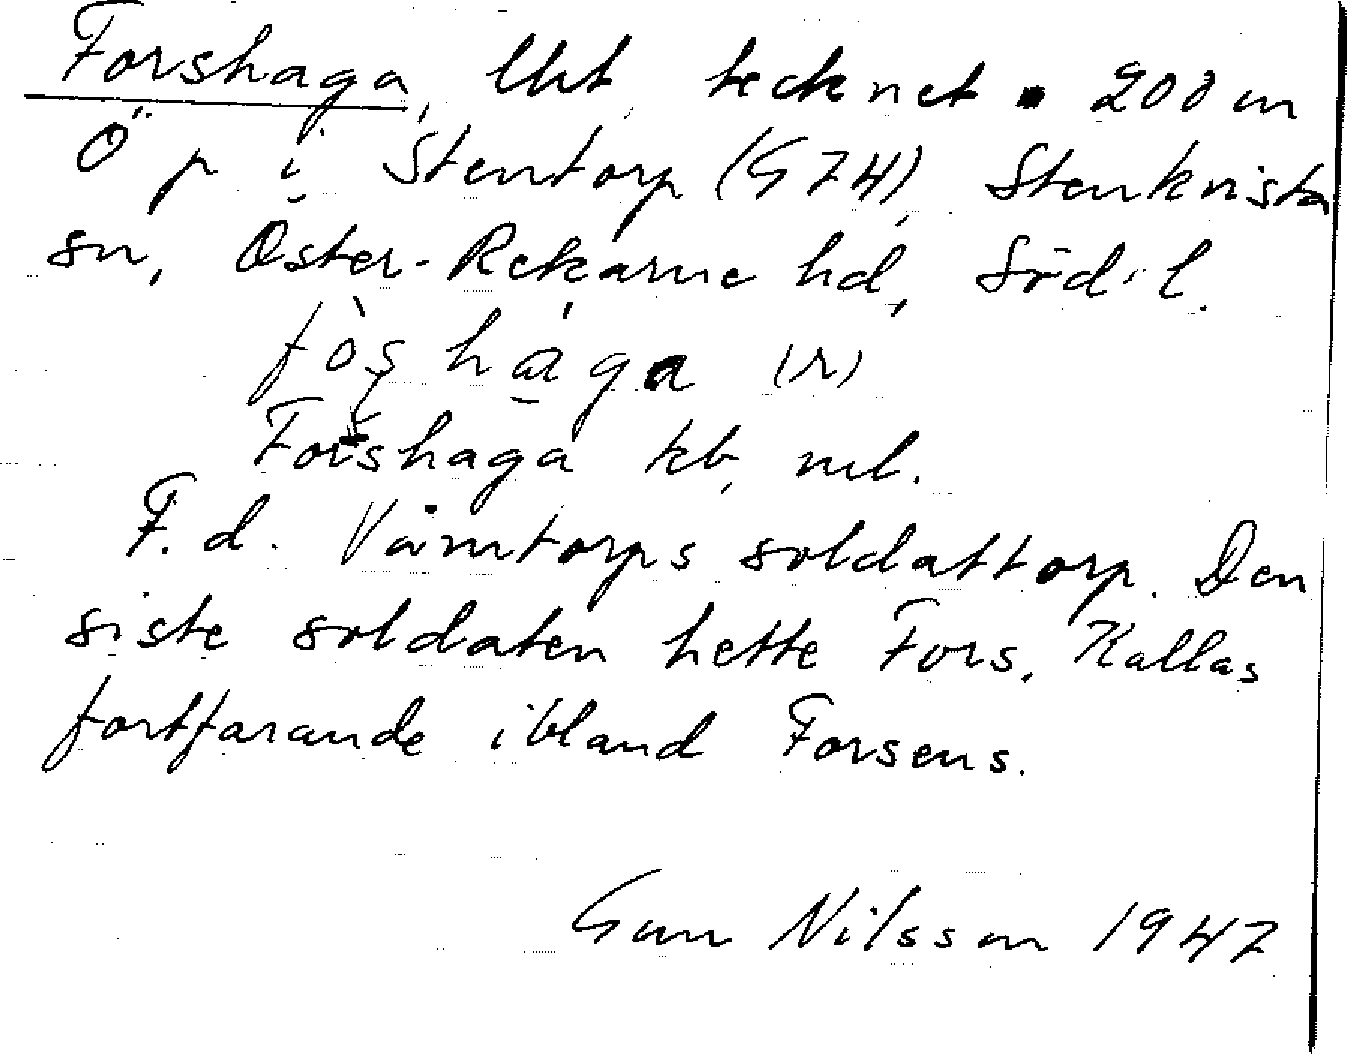 Forshaga, lht, tecknet ▪ 200 m
Ö p i Stentorp (G7H), Stenkvista
sn, Öster-Rekarne hd, Söd. l.
fòʂhа́ga (r)
Forshaga kb, ml.
F.d. Våmtorps soldattorp. Den
siste soldaten hette Fors. Kallas
fortfarande ibland Forsens.
Gun Nilsson 1947